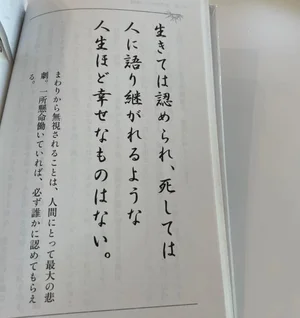 生きては認められ、死しては
人に語り継がれるような
人生ほど幸せなものはない。
まわりから無視されることは、人間にとって最大の悲
劇。一所懸命働いていれば、必ず誰かに認めてもらえ
る。